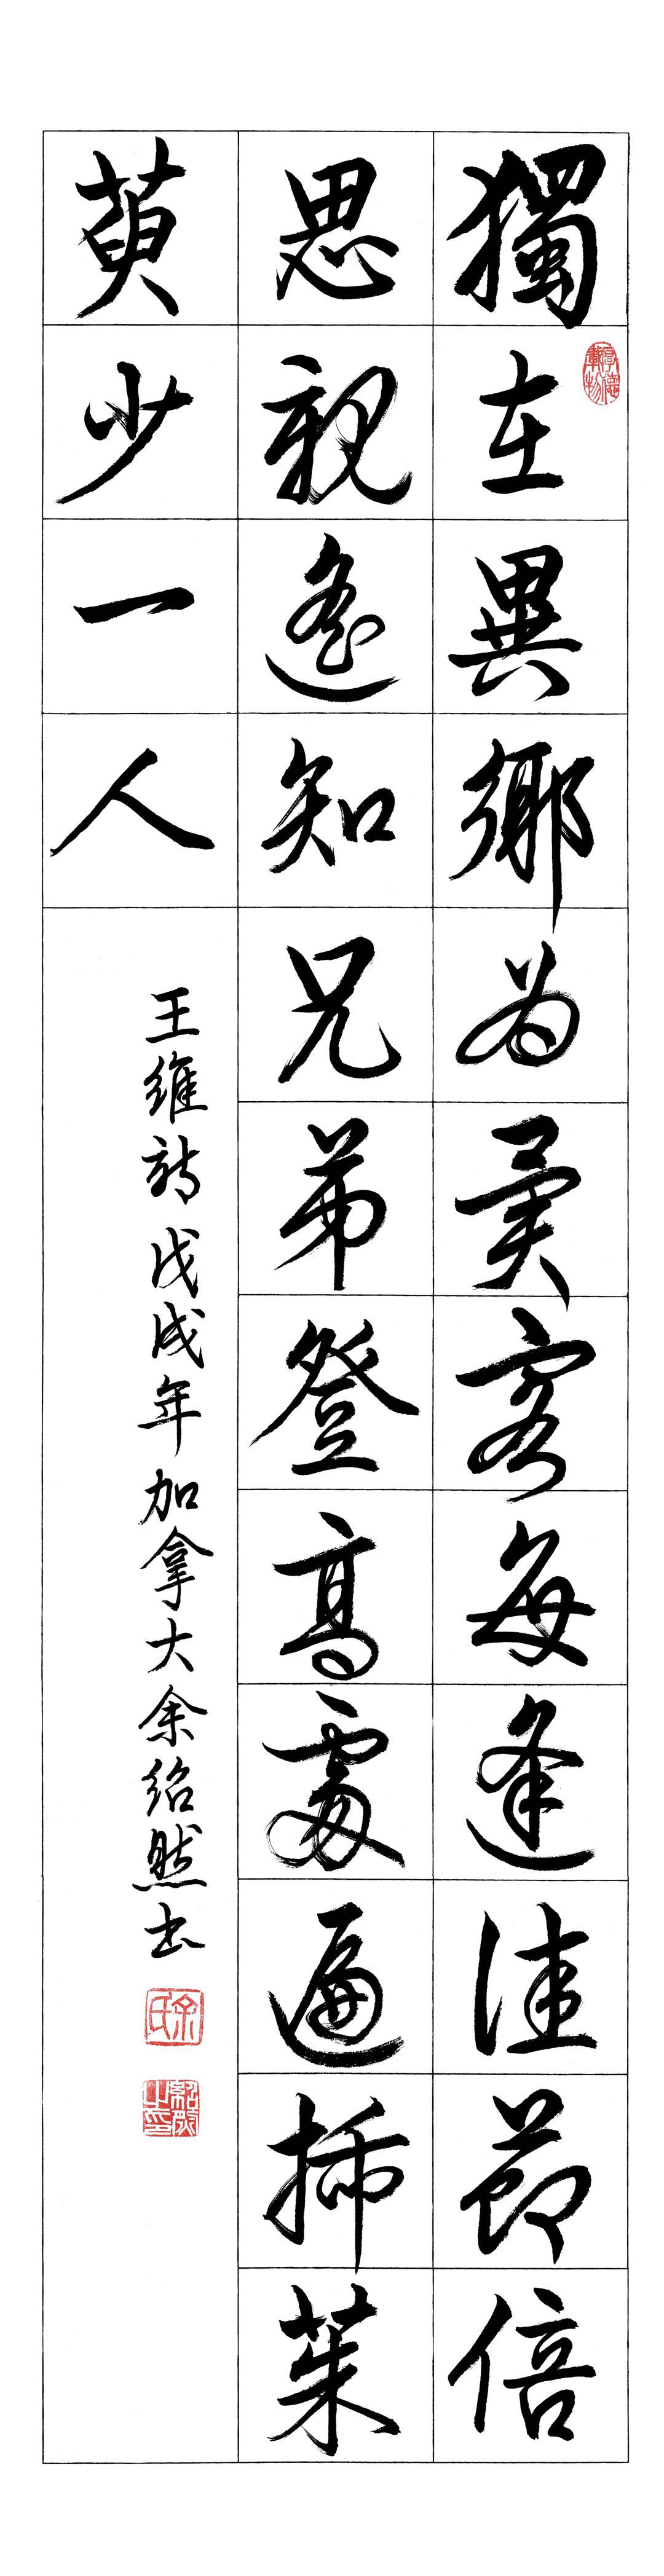 獨在異鄉為異客每逢佳節倍
厚德載物
思親遙知兄弟登高處遍插茱
萸少一人
王維詩戊戌年加拿大余紹然書
余氏
紹然之印